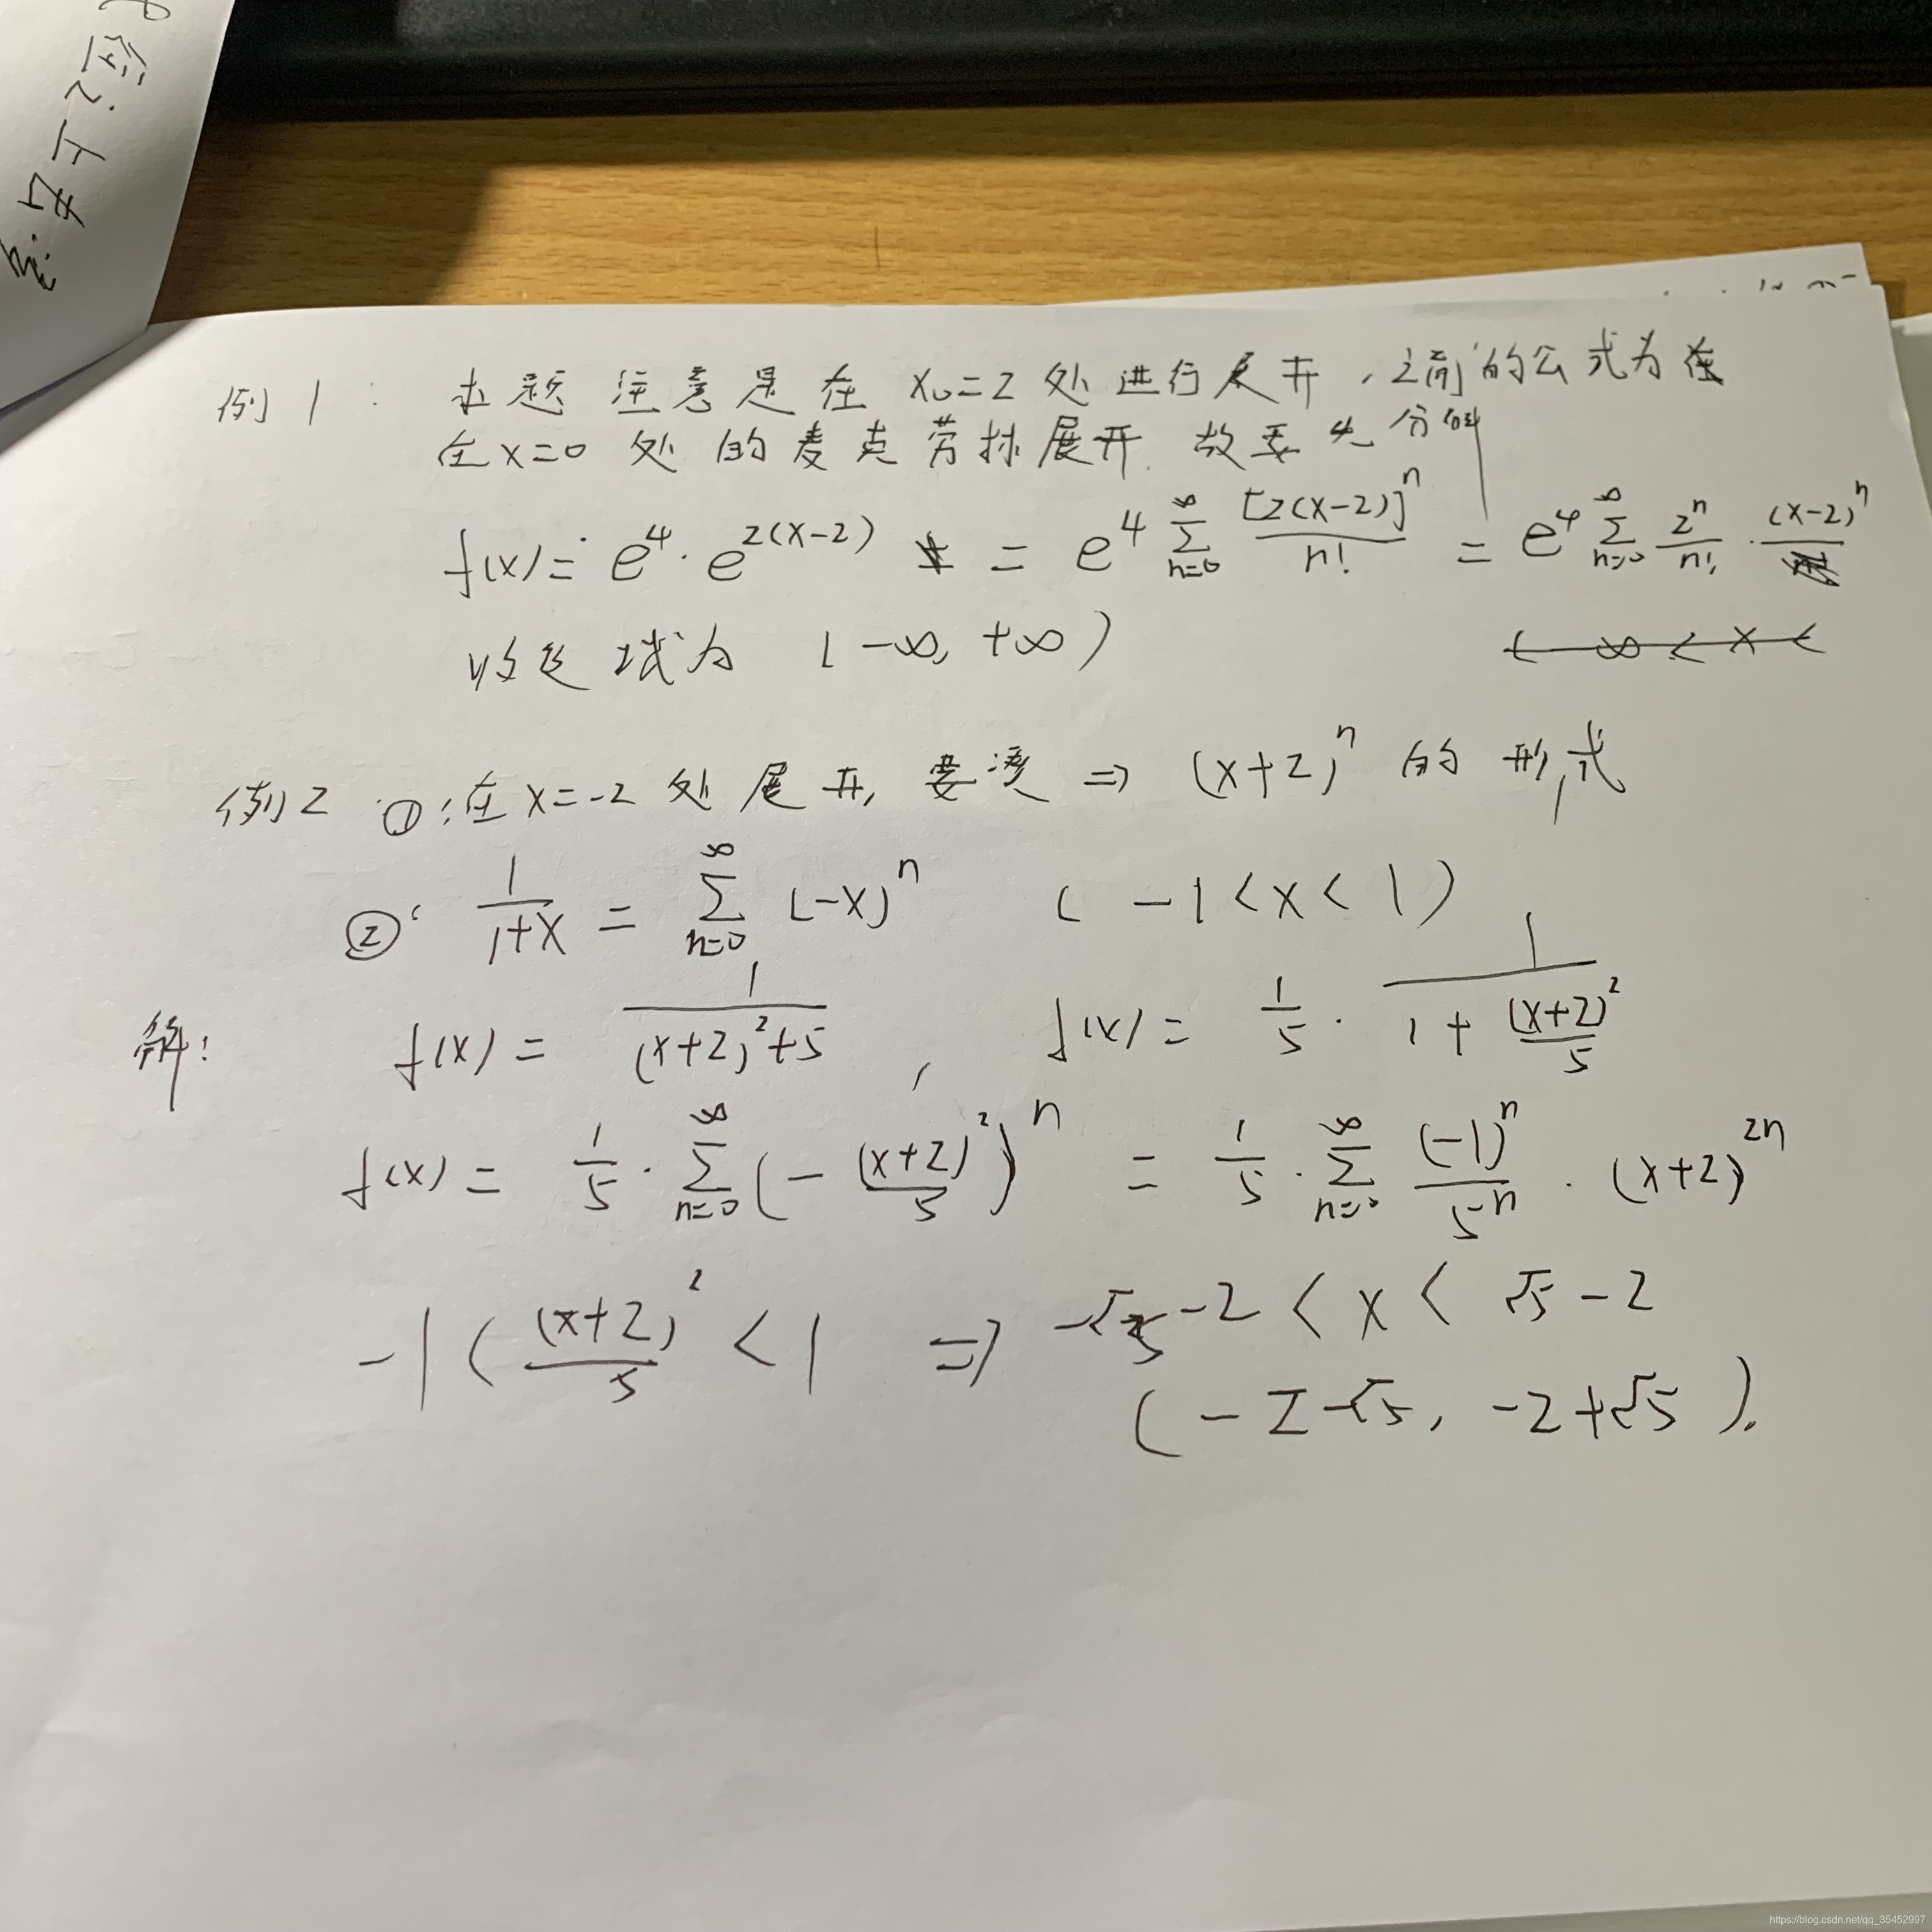 例1: 本题 注意是在 x₀=2 处进行展开,之前的公式为
在x=0 处的麦克劳林展开. 故要先分解
f(x)= e^4 · e^{2(x-2)} = e^4 \sum_{n=0}^{∞} \frac{[2(x-2)]^n}{n!} = e^4 \sum_{n=0}^{∞} \frac{2^n}{n!} · (x-2)^n
收敛域为 (-∞, +∞)
例2 ①:在x=-2 处展开, 要凑 ⇒ (x+2)^n 的形式
②: \frac{1}{1+x} = \sum_{n=0}^{∞} (-x)^n (-1<x<1)
解: f(x) = \frac{1}{(x+2)^2+5} , f(x) = \frac{1}{5} · \frac{1}{1+\frac{(x+2)^2}{5}}
f(x) = \frac{1}{5} · \sum_{n=0}^{∞} (-\frac{(x+2)^2}{5})^n = \frac{1}{5} · \sum_{n=0}^{∞} \frac{(-1)^n}{5^n} · (x+2)^{2n}
-1 < \frac{(x+2)^2}{5} < 1 ⇒ -√5-2 < x < √5-2
(-2-√5, -2+√5).
https://blog.csdn.net/qq_35452997